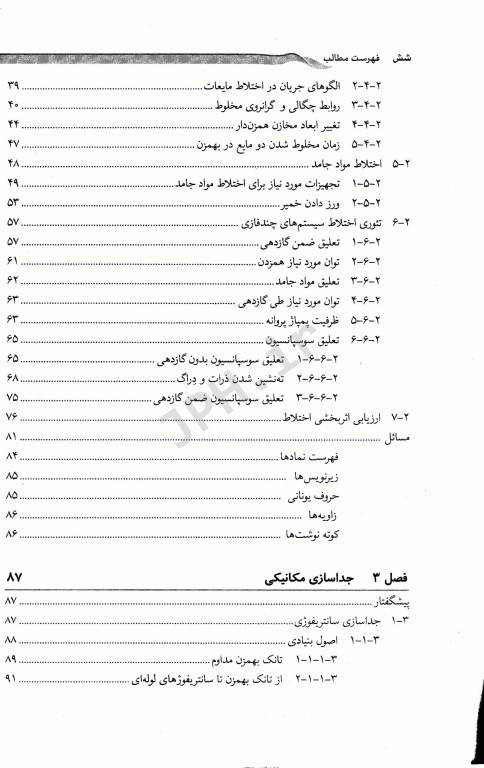 شش فهرست مطالب
۲-۴-۲ الگوهای جریان در اختلاط مایعات ۳۹
۲-۴-۳ روابط چگالی و گرانروی مخلوط ۴۰
۲-۴-۴ تغییر ابعاد مخازن همزن‌دار ۴۴
۲-۴-۵ زمان مخلوط شدن دو مایع در بهمزن ۴۷
۲-۵ اختلاط مواد جامد ۴۸
۲-۵-۱ تجهیزات مورد نیاز برای اختلاط مواد جامد ۴۹
۲-۵-۲ ورز دادن خمیر ۵۳
۲-۶ تئوری اختلاط سیستم‌های چندفازی ۵۷
۲-۶-۱ تعلیق ضمن گازدهی ۵۷
۲-۶-۲ توان مورد نیاز همزدن ۶۱
۲-۶-۳ تعلیق مواد جامد ۶۲
۲-۶-۴ توان مورد نیاز طی گازدهی ۶۳
۲-۶-۵ ظرفیت پمپاژ پروانه ۶۳
۲-۶-۶ تعلیق سوسپانسیون ۶۵
۲-۶-۶-۱ تعلیق سوسپانسیون بدون گازدهی ۶۵
۲-۶-۶-۲ ته‌نشین شدن ذرات و دِراگ ۶۸
۲-۶-۶-۳ تعلیق سوسپانسیون ضمن گازدهی ۷۵
۲-۷ ارزیابی اثربخشی اختلاط ۷۶
مسائل ۸۱
فهرست نمادها ۸۴
زیرنویس‌ها ۸۵
حروف یونانی ۸۵
زاویه‌ها ۸۶
کوته نوشت‌ها ۸۶
فصل ۳ جداسازی مکانیکی ۸۷
پیشگفتار ۸۷
۳-۱ جداسازی سانتریفوژی ۸۷
۳-۱-۱ اصول بنیادی ۸۸
۳-۱-۱-۱ تانک بهمزن مداوم ۸۹
۳-۱-۱-۲ از تانک بهمزن تا سانتریفوژهای لوله‌ای ۹۱
JPH.ir